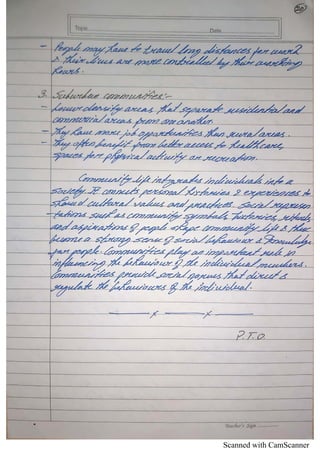 30
Topic
Date
- People may have to travel long distances for work
& their lives are more controlled by their working
hours.
3. Suburban communities:-
- Lower density areas that separate residential and
commercial areas from one another.
- They have more job opportunities than rural areas.
- They often benefit from better access to healthcare,
spaces for physical activity on recreation.
Community life integrates individuals into a
society. It connects personal histories & experiences to
shared cultural values and practices. Social represen
-tations such as community symbols, histories, rituals
and aspirations of people shape community life & thus
become a strong sense of social behaviour & knowledge
for people. Communities play an important role in
influencing the behaviour of the individual members.
Communities provide social norms that direct &
regulate the behaviours of the individual.
x x
P.T.O.
Teacher's Sign
Scanned with CamScanner